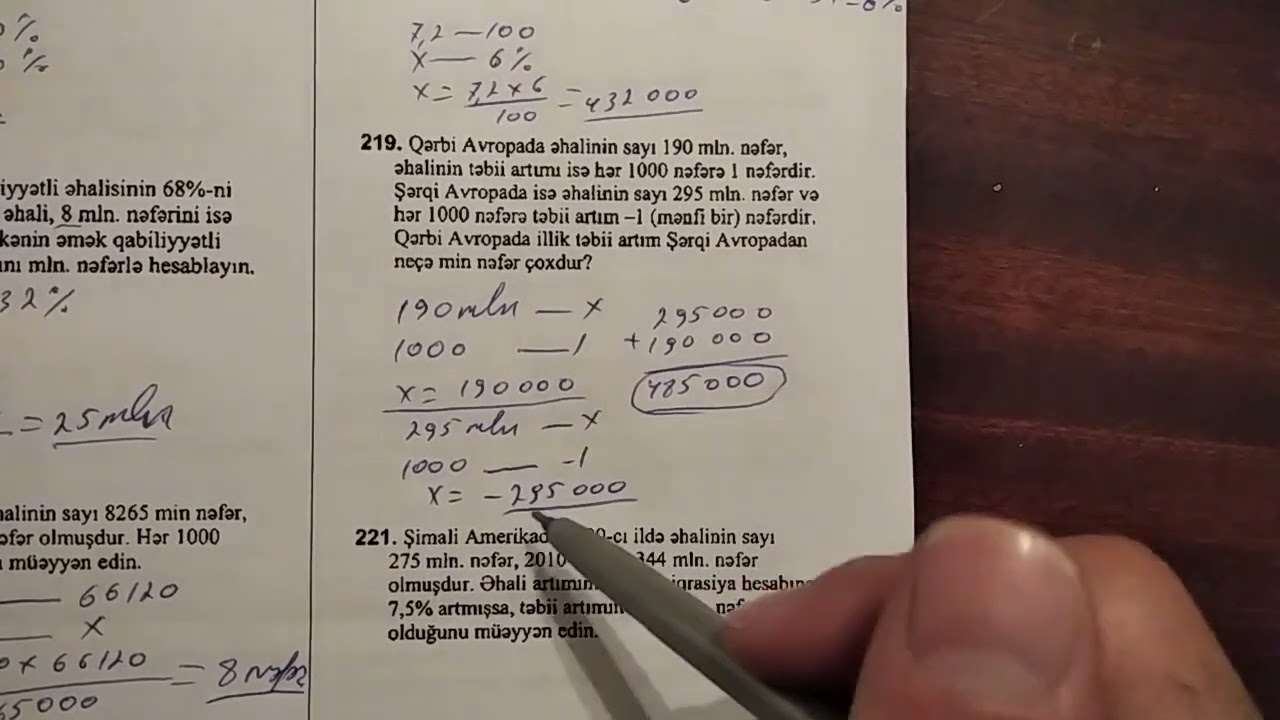 %
%
iyyətli əhalisinin 68%-ni
əhali, 8 mln. nəfərini isə
kənin əmək qabiliyyətli
nı mln. nəfərlə hesablayın.
32%
= 25 mln
halinin sayı 8265 min nəfər,
əfər olmuşdur. Hər 1000
müəyyən edin.
66120
X
0 x 66120 = 8 nəfər
65000
7,2 — 100
X — 6%
X = 7,2 x 6 / 100 = 432 000
219. Qərbi Avropada əhalinin sayı 190 mln. nəfər,
əhalinin təbii artımı isə hər 1000 nəfərə 1 nəfərdir.
Şərqi Avropada isə əhalinin sayı 295 mln. nəfər və
hər 1000 nəfərə təbii artım –1 (mənfi bir) nəfərdir.
Qərbi Avropada illik təbii artım Şərqi Avropadan
neçə min nəfər çoxdur?
190 mln — X
1000 — 1
X = 190000
295 mln — X
1000 — -1
X = -295 000
295000
+ 190 000
485000
221. Şimali Amerikad -cı ildə əhalinin sayı
275 mln. nəfər, 2010 344 mln. nəfər
olmuşdur. Əhali artımın iqrasiya hesabın
7,5% artmışsa, təbii artımın nəf
olduğunu müəyyən edin.